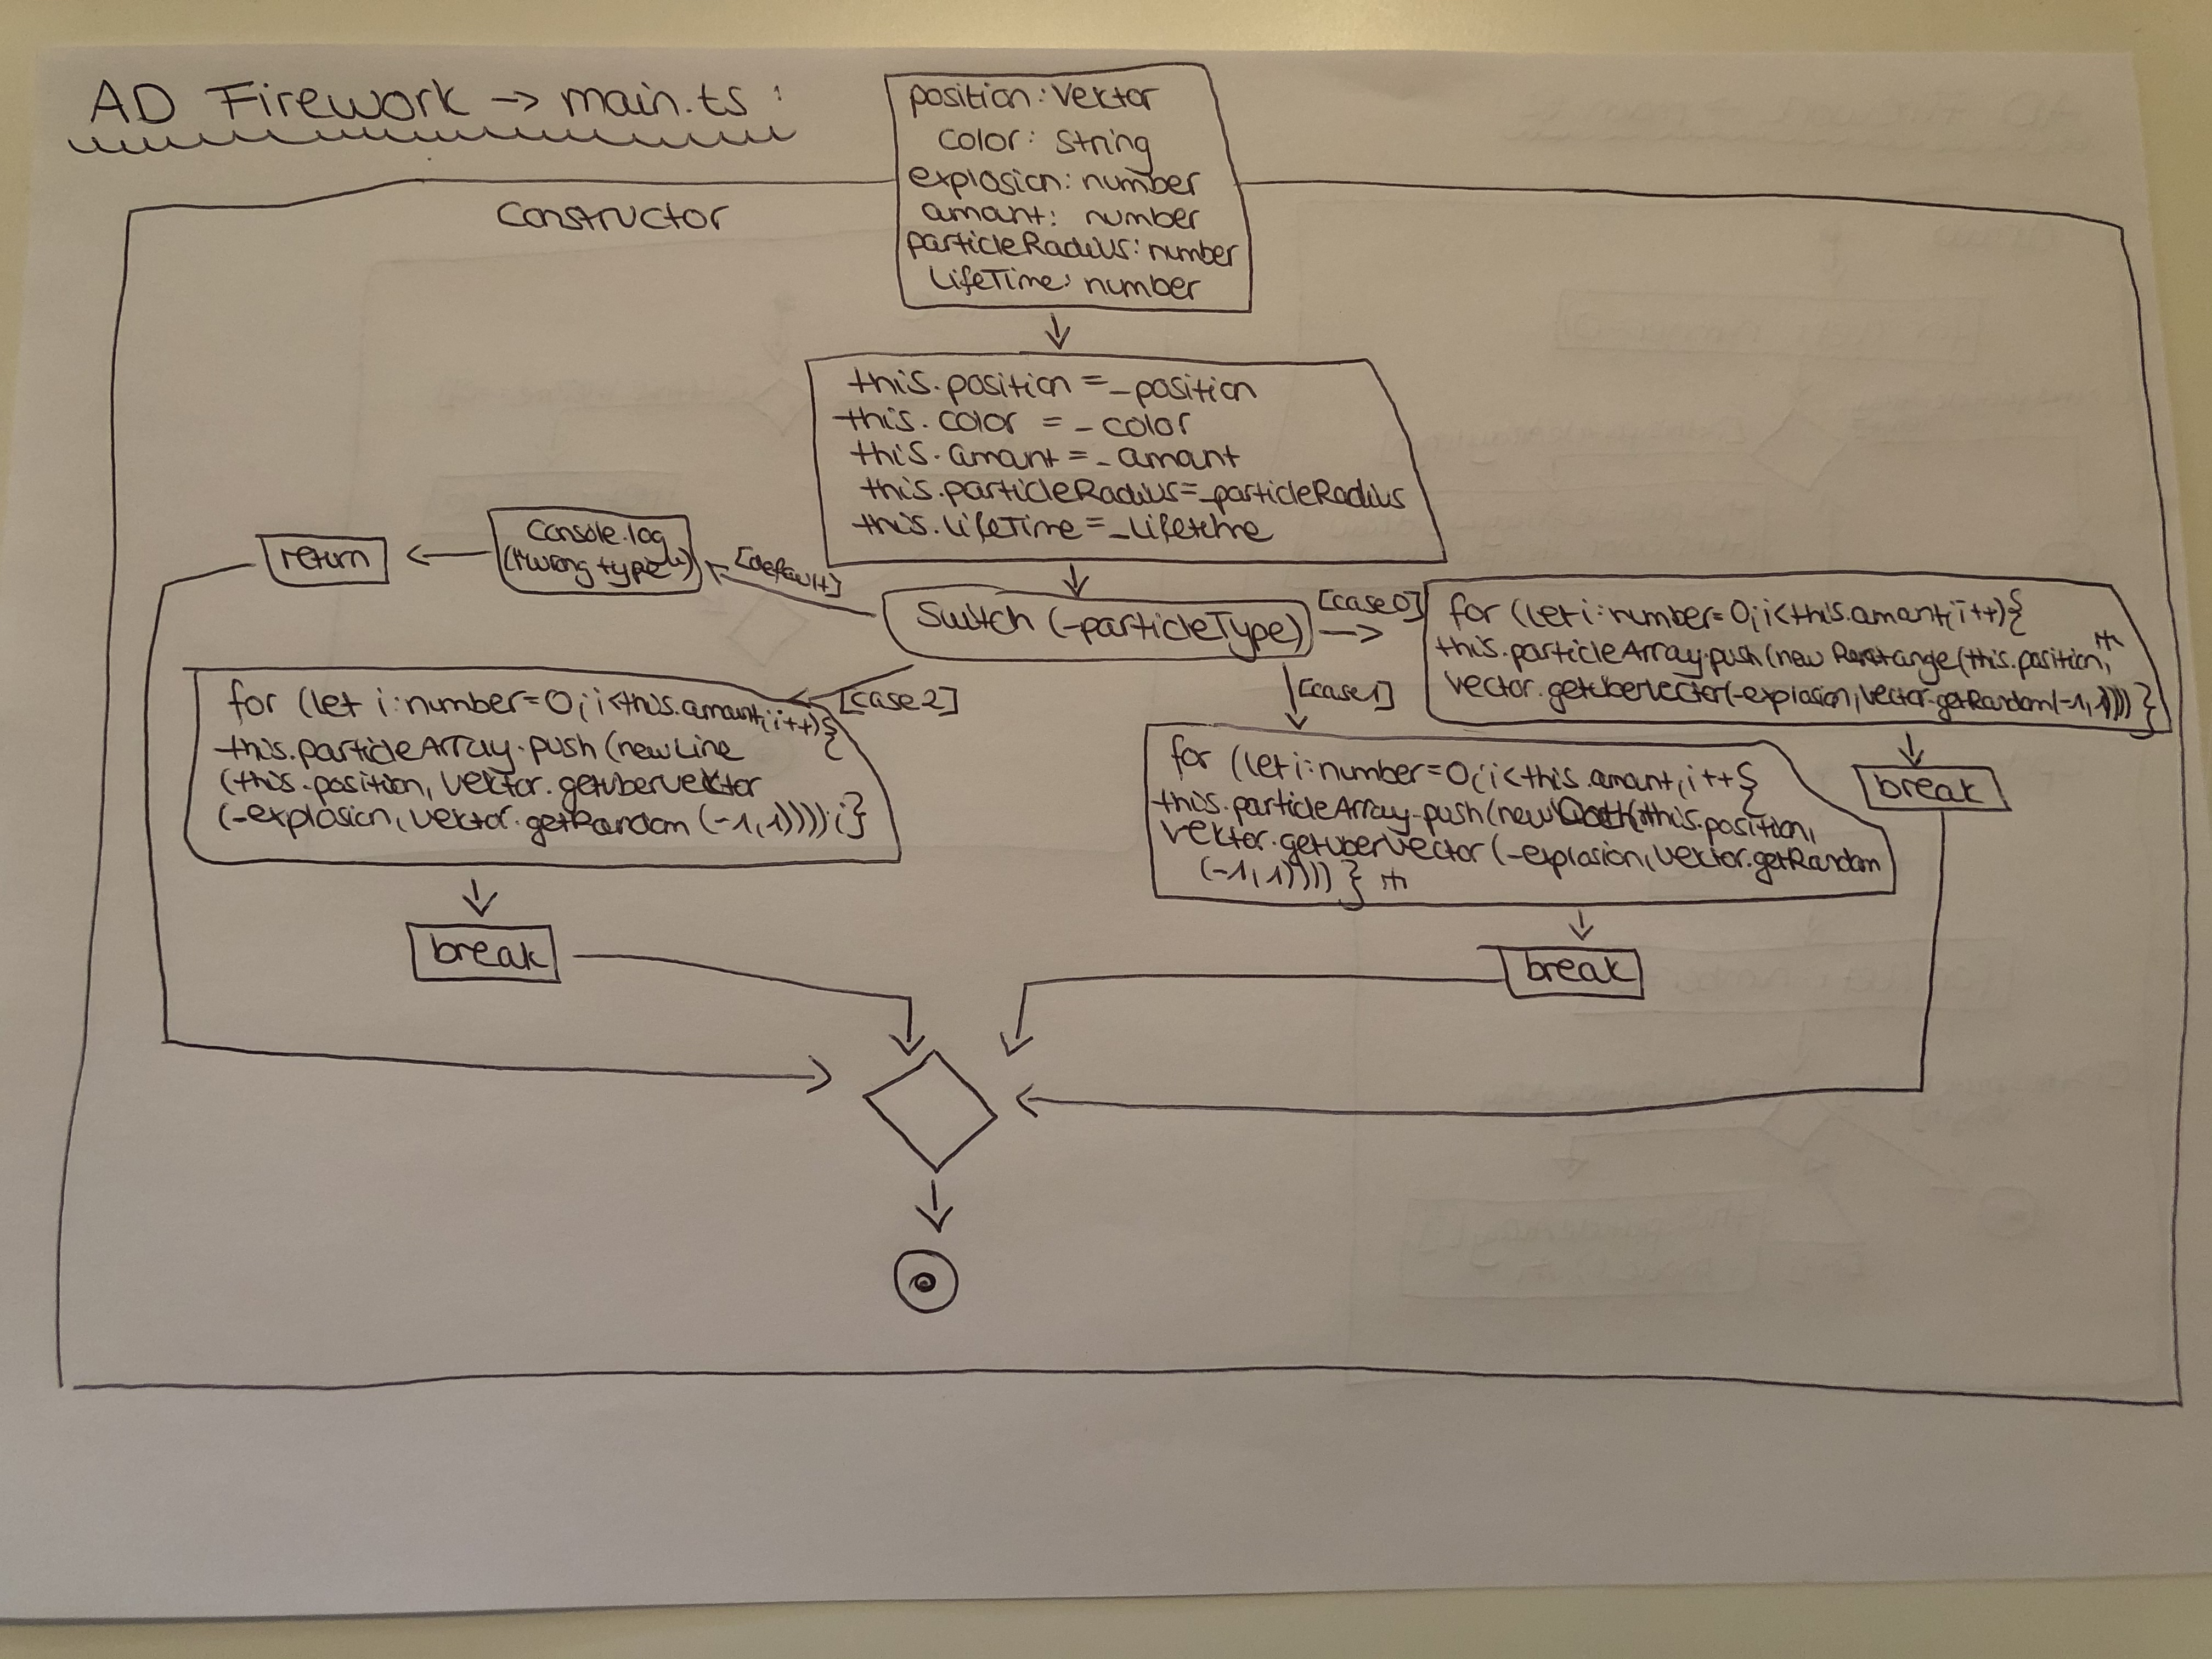 AD Firework -> main.ts:
Constructor
position: Vektor
color: string
explosion: number
amount: number
particleRadius: number
LifeTime: number
this.position = _position
this.color = _color
this.amount = _amount
this.particleRadius = _particleRadius
this.LifeTime = _Lifetime
Switch (_particleType)
[default]
Console.log
("wrong type")
return
[case 2]
for (let i: number = 0; i < this.amount; i++) {
this.particleArray.push(new Line
(this.position, Vektor.getuberVektor
(-explosion, vektor.getRandom (-1,1))));}
break
[case 1]
for (let i: number = 0; i < this.amount, i++ {
this.particleArray.push(new (this.position,
Vektor.getuberVector (-explosion, Vektor.getRandom
(-1,1))))) }
break
[case 0]
for (let i: number = 0; i < this.amount; i++) {
this.particleArray.push (new (this.position,
Vector.getuberVector(-explosion, Vector.getRandom(-1,1)))) }
break